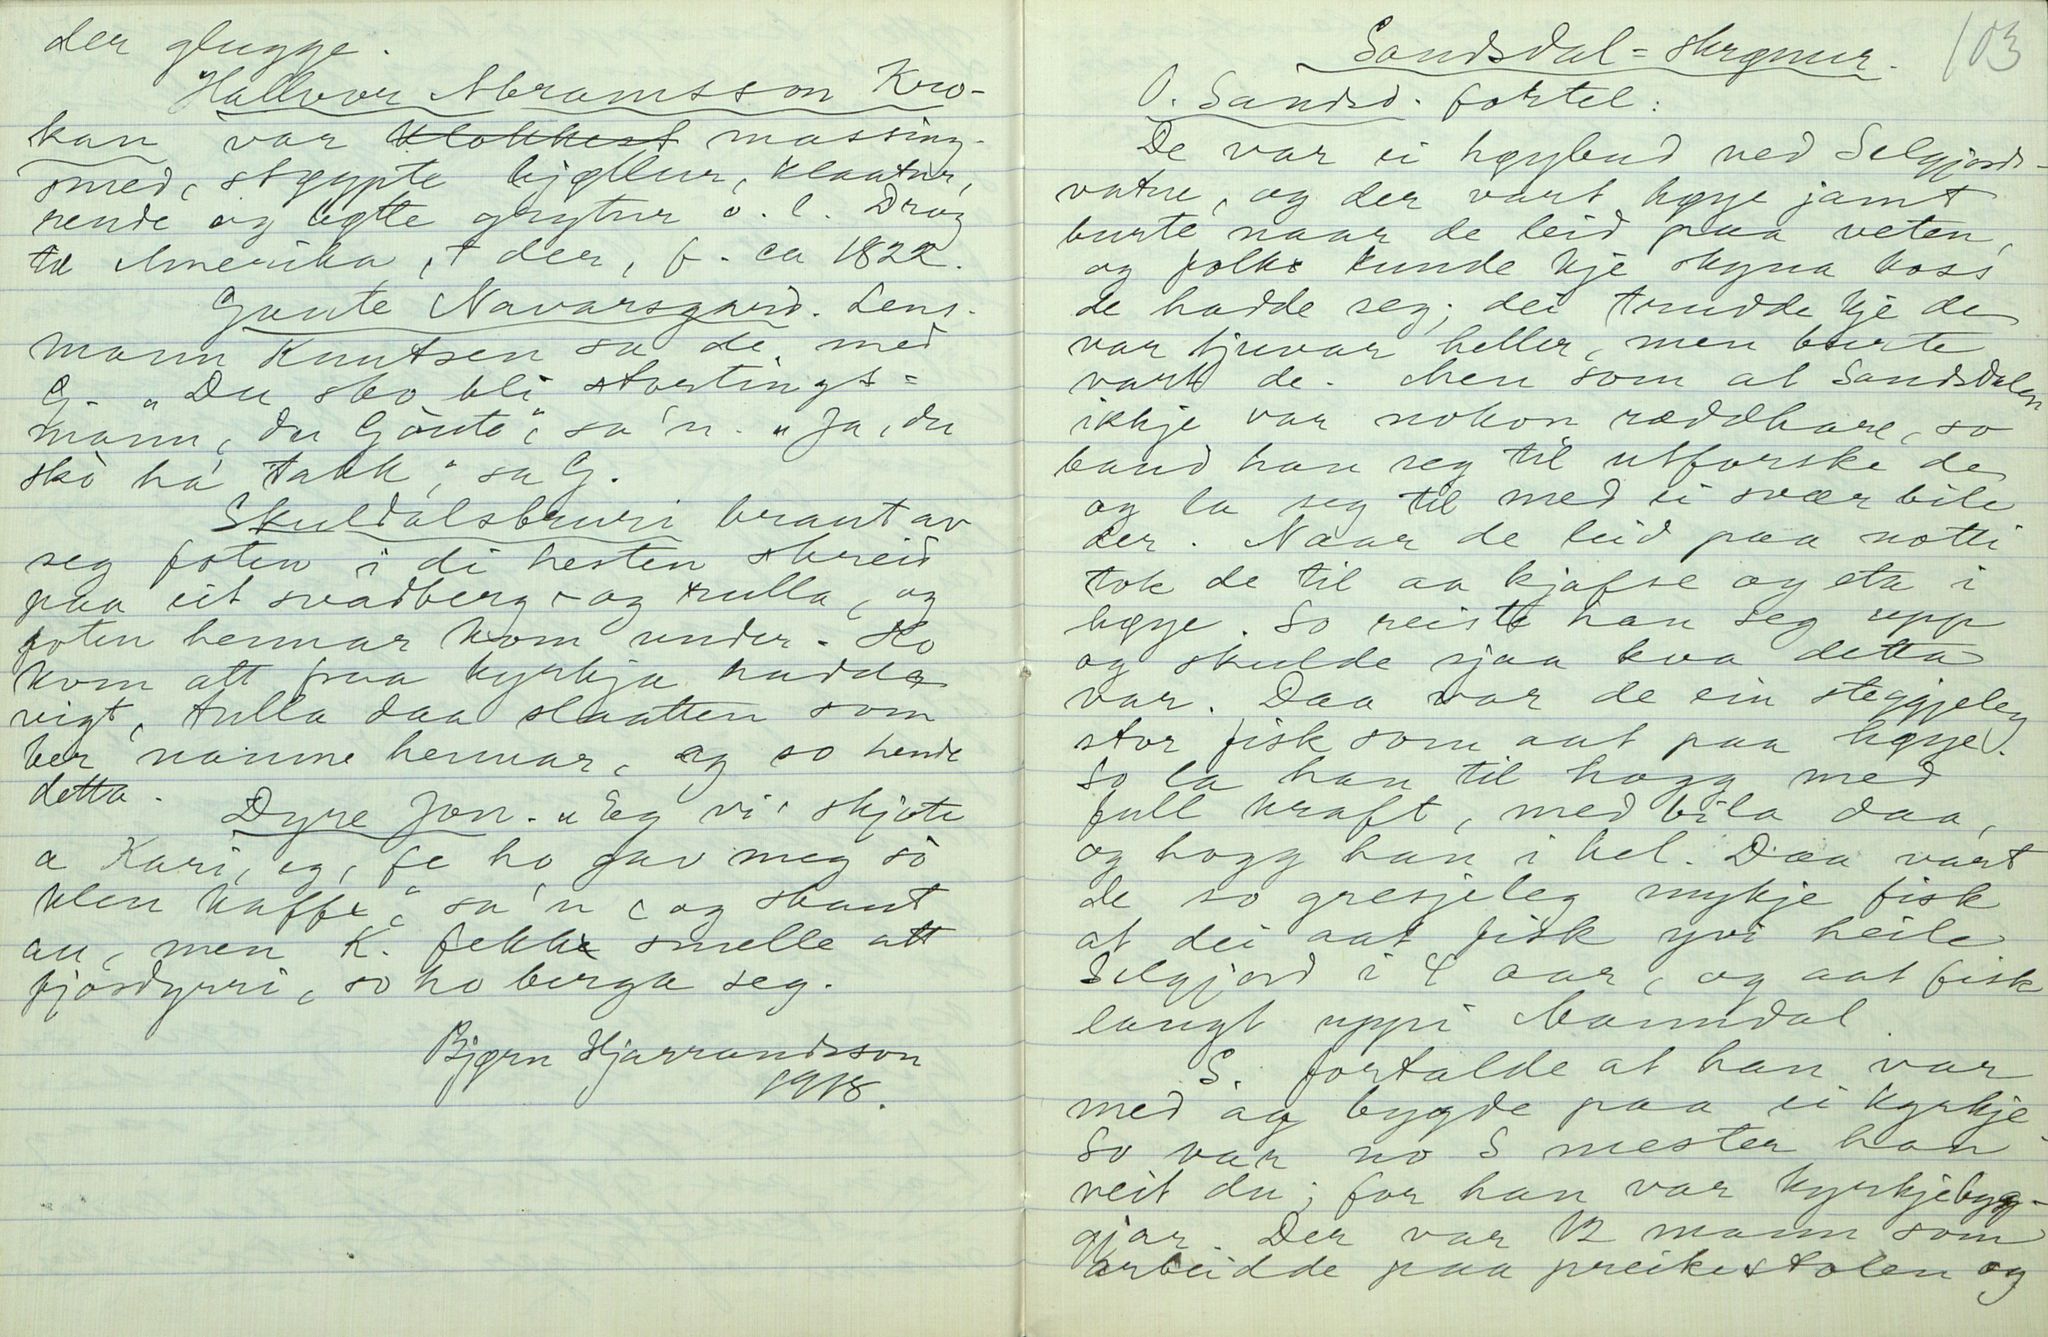 der glugge.
Hallvor Abramsson Kro-
kan var klokkest massing-
smed, støypte bjøllur, klaatur,
rende og bøtte grytur o. l. Drog
te Amerika, † der, f. ca 1822.
Gunte Navarsgard. Lens-
mann Knutsen sa de med
G. "Du sko bli stortings=
mann, du Gònte", sa'n. "Ja, du
skò há takk," sa G.
Skuldalsbruri braut av
seg foten i di hesten skreid
paa eit svadberg og rulla, og
foten hennar kom under. Ho
kom att fraa kyrkja hadde
vigt, tulla daa slaatten som
ber namne hennar, og so hende
detta.
Dyre Jon. "Eg vi' skjote
a Kari, eg, fe ho gav meg sò
klen kaffe", sa'n, og skaut
au, men K. fekk smelle att
fjosdyrri, so ho berga seg.
Bjørn Hjarrandsson
1918.
Sandsdal=skrønur.
103
O. Sandsd. fortel:
De var ei høybud ved Selgjords-
vatne, og der vart høye jamt
burte naar de leid paa veten,
og folk kunde kje skyna koss
de hadde seg; dei trudde kje de
var tjuvar heller, men burte
vart de. Men som at Sandsdalen
ikkje var nokon ræddhare, so
baud han seg til utforske de
og la seg til med ei svær bile
der. Naar de leid paa notti
tok de til aa kjafse og eta i
høye. So reiste han seg upp
og skulde sjaa kva detta
var. Daa var de ein steggjeleg
stor fisk som aat paa høye.
So la han til hogg med
full kraft, med bila daa,
og hogg han i hel. Daa vart
de so gresjeleg mykje fisk
at dei aat fisk yvi heile
Selgjord i 4 aar, og aat fisk
langt uppi Manndal.
S. fortalde at han var
med og bygde paa ei kyrkje.
So var no S mester han
veit du; for han var kyrkjebyg-
gjar. Der var 12 mann som
arbeidde paa preikestolen og